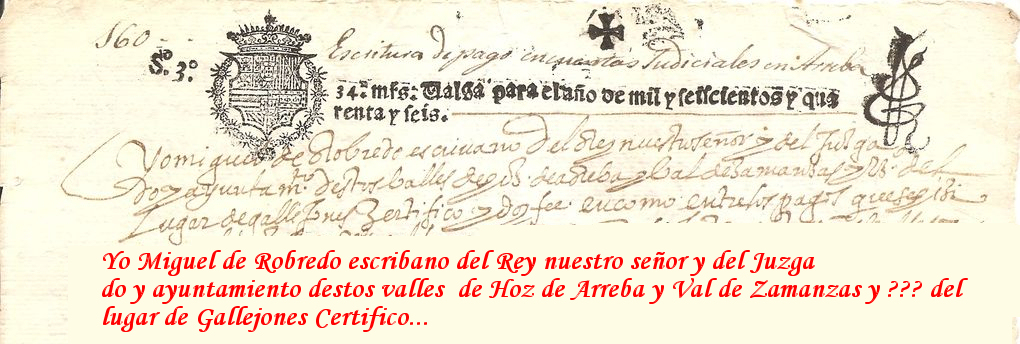 160
Escritura de pago en quantas Judiciales en Arreba
Sº. 3º.
34. mrs. Ualga para el año de mil y seiscientos y qua
renta y seis.
Yo miguel de Robredo escriuano del Rey nuestro señor y del Juzga
do y ayuntamtº destos balles de de arreba y bal de samanzas y del
Lugar de gallejones Zertifico y doy fee en como entre los pagos que
Yo Miguel de Robredo escribano del Rey nuestro señor y del Juzga
do y ayuntamiento destos valles de Hoz de Arreba y Val de Zamanzas y ??? del
lugar de Gallejones Certifico...